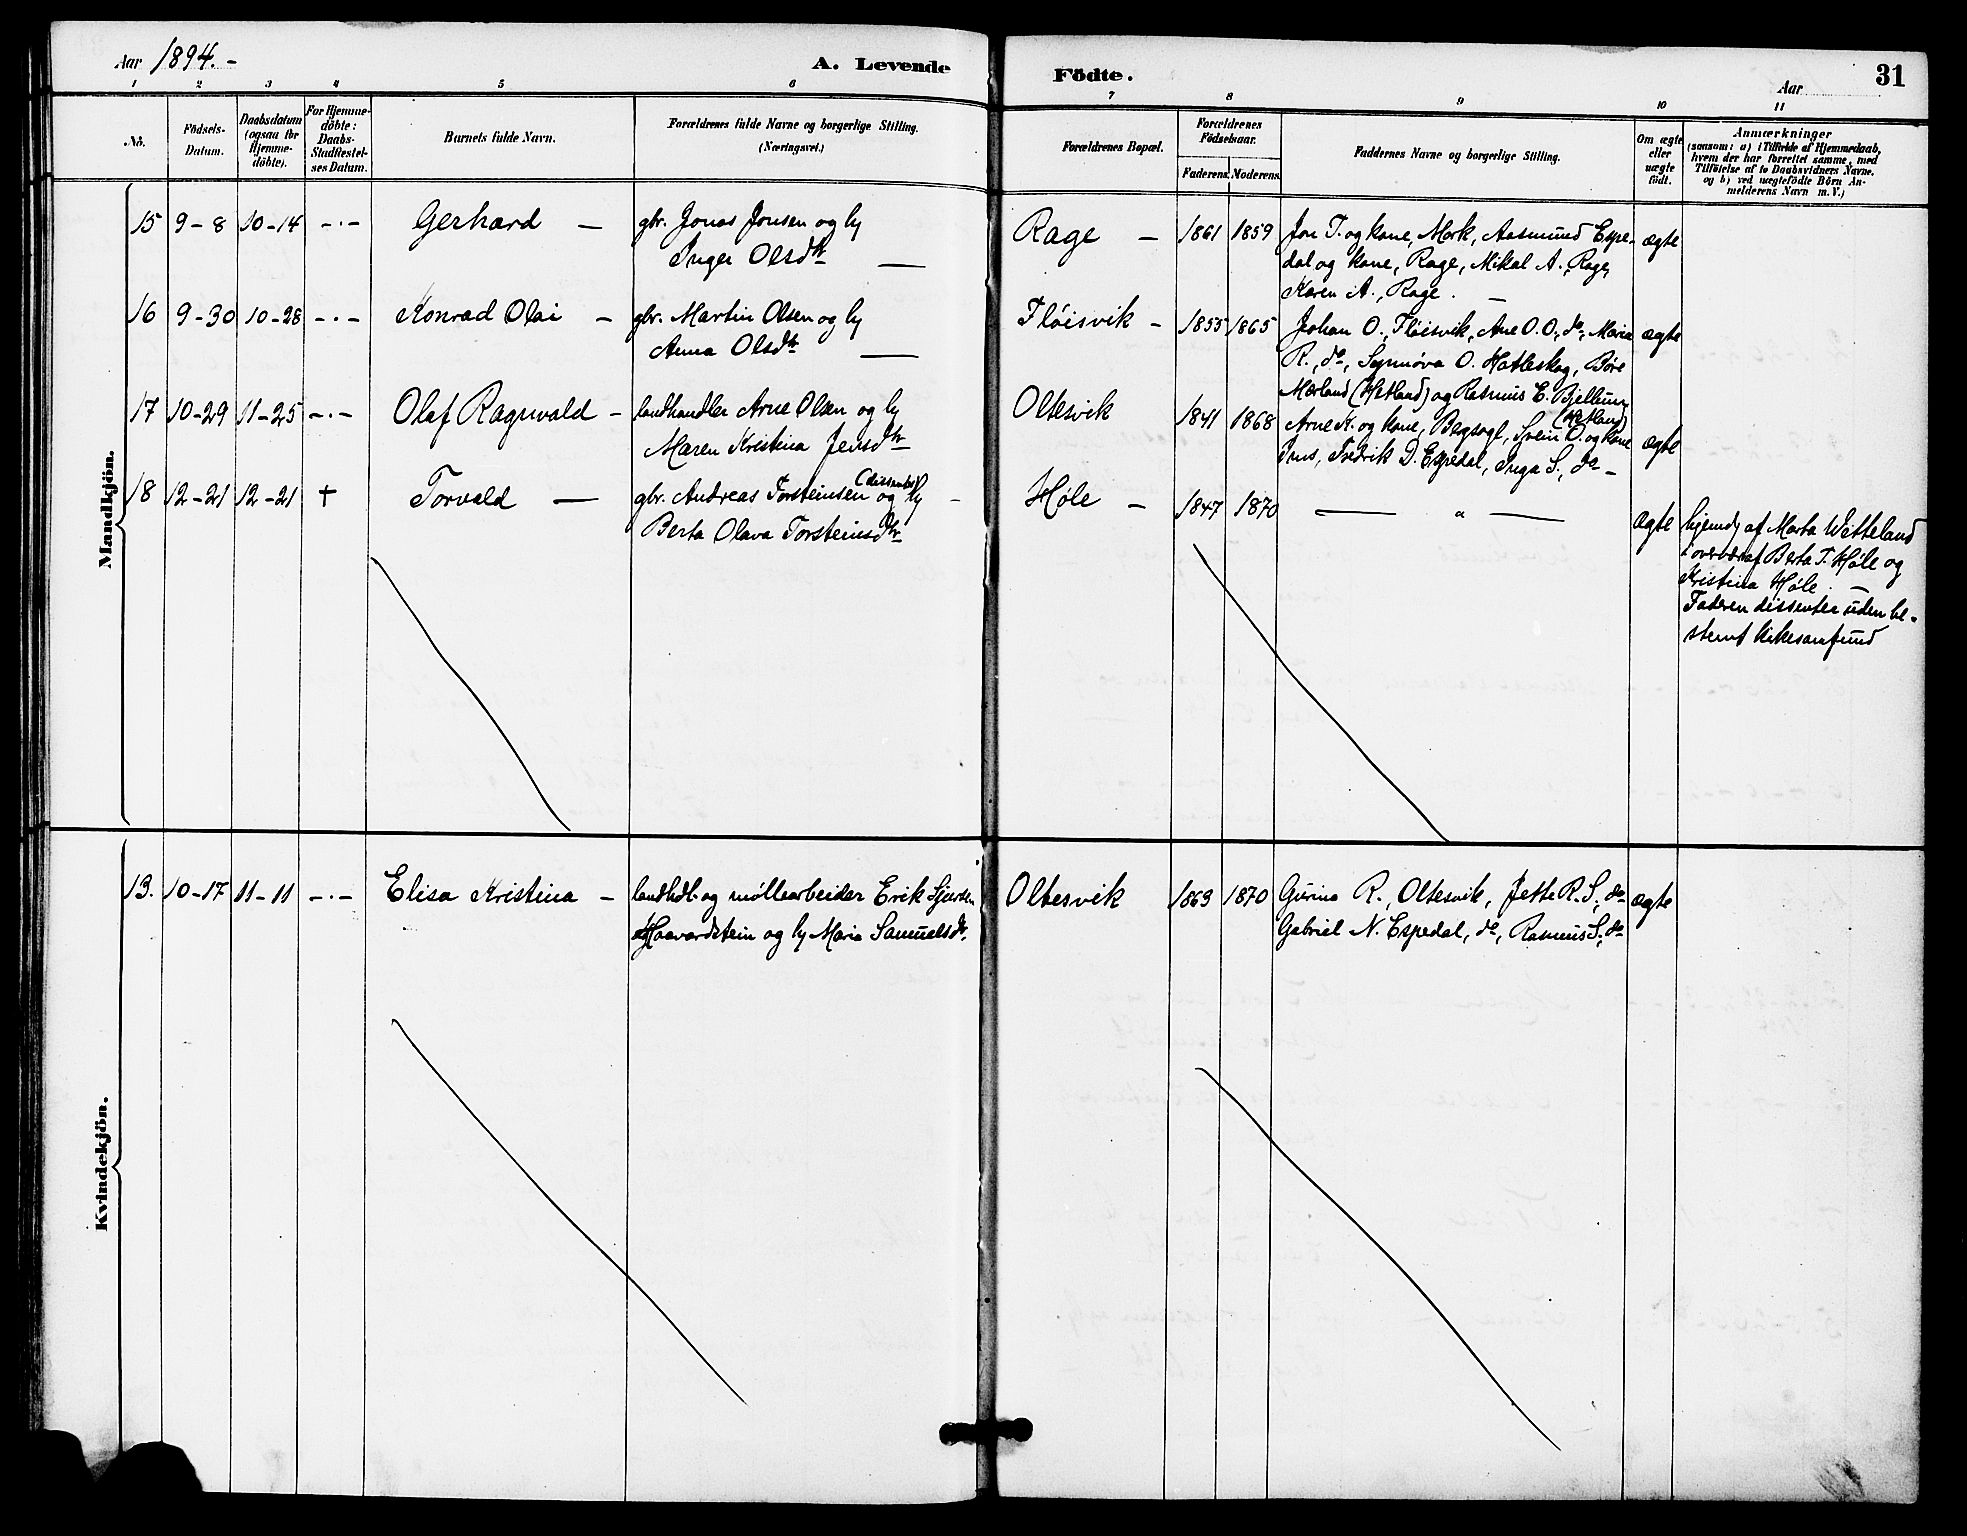 Aar 1894.-
A. Levende
Födte.
Aar
31
1 2 3 4 5 6
7 8 9 10 11
No.
Födsels-
Datum.
Daabsdatum
(ogsaa for
Hjemme-
döbte).
For Hjemme-
döbte:
Daabs-
Stadfæstel-
ses Datum.
Barnets fulde Navn.
Forældrenes fulde Navne og borgerlige Stilling.
(Næringsvei.)
Forældrenes Bopæl.
Forældrenes
Födselsaar.
Faderens. Moderens.
Faddernes Navne og borgerlige Stilling.
Om ægte
eller
uægte
födt.
Anmærkninger
(saasom: a) i Tilfælde af Hjemmedaab,
hvem der har forrettet samme, med
Tilföielse af to Daabsvidners Navne.
og b) ved uægtefödte Börn An-
melderens Navn m. V.)
Mandkjön.
15 9-8 10-14 -·- Gerhard - gbr. Jonas Jonsen og h
Inger Olsdtr —
Rage - 1861 1859 Jon T. og kone, Mork, Aasmund Espe- ægte
dal og kone, Rage, Mikal A., Rage,
Karen A., Rage. —
16 9-30 10-28 -·- Konrad Olai - gbr. Martin Olsen og h
Anna Olsdtr —
Fløisvik - 1855 1865 Johan O., Fløisvik, Ane O. O., do, Maria ægte
R., do, Synnøva O. Hatleskog, Børe
Mærland (Hetland) og Rasmus E. Bjellum
(Hetland)
17 10-29 11-25 -·- Olaf Ragnvald - landhandler Arne Olsen og h
Maren Kristina Jensdtr
Oltesvik 1841 1868 Arne K. og kone, Bergsagl, Svein O. og kone ægte
Ims, Fredrik D. Espedal, Inga S., do -
18 12-21 12-21 + Torvald — gbr. Andreas Torsteinsen (dissenter) og h -
Berta Olava Torsteinsdtr
Høle - 1847 1870 — " — Ægte
hjemd. af Marta Wetteland
i overvær af Berta T. Høle og
Kristina Høle. —
Faderen dissenter uden be-
stemt kirkesamfund
Kvindekjön.
13. 10-17 11-11 -·- Elisa Kristina - landhdl. og møllearbeider Erik Sjursen
Haavardstein og h Maria Samuelsdr.
Oltesvik 1863 1870 Gurina R., Oltesvik, Jette R. S., do ægte
Gabriel N. Espedal, do, Rasmus S., do